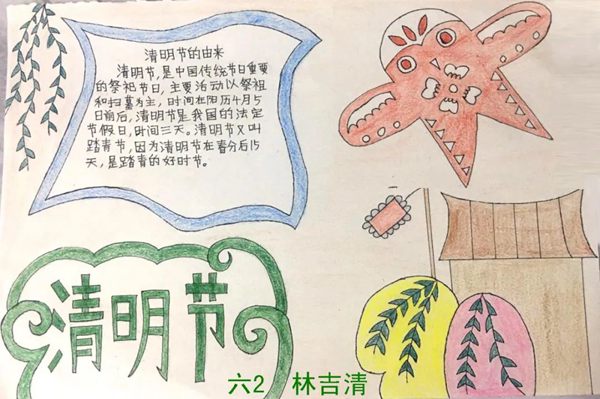 清明节的由来
清明节,是中国传统节日重要
的祭祀节日,主要活动以祭祖
和扫墓为主,时间在阳历4月5
日前后,清明节是我国的法定
节假日,时间三天。清明节又叫
踏青节,因为清明节在春分后15
天,是踏青的好时节。
清明节
六2 林吉清